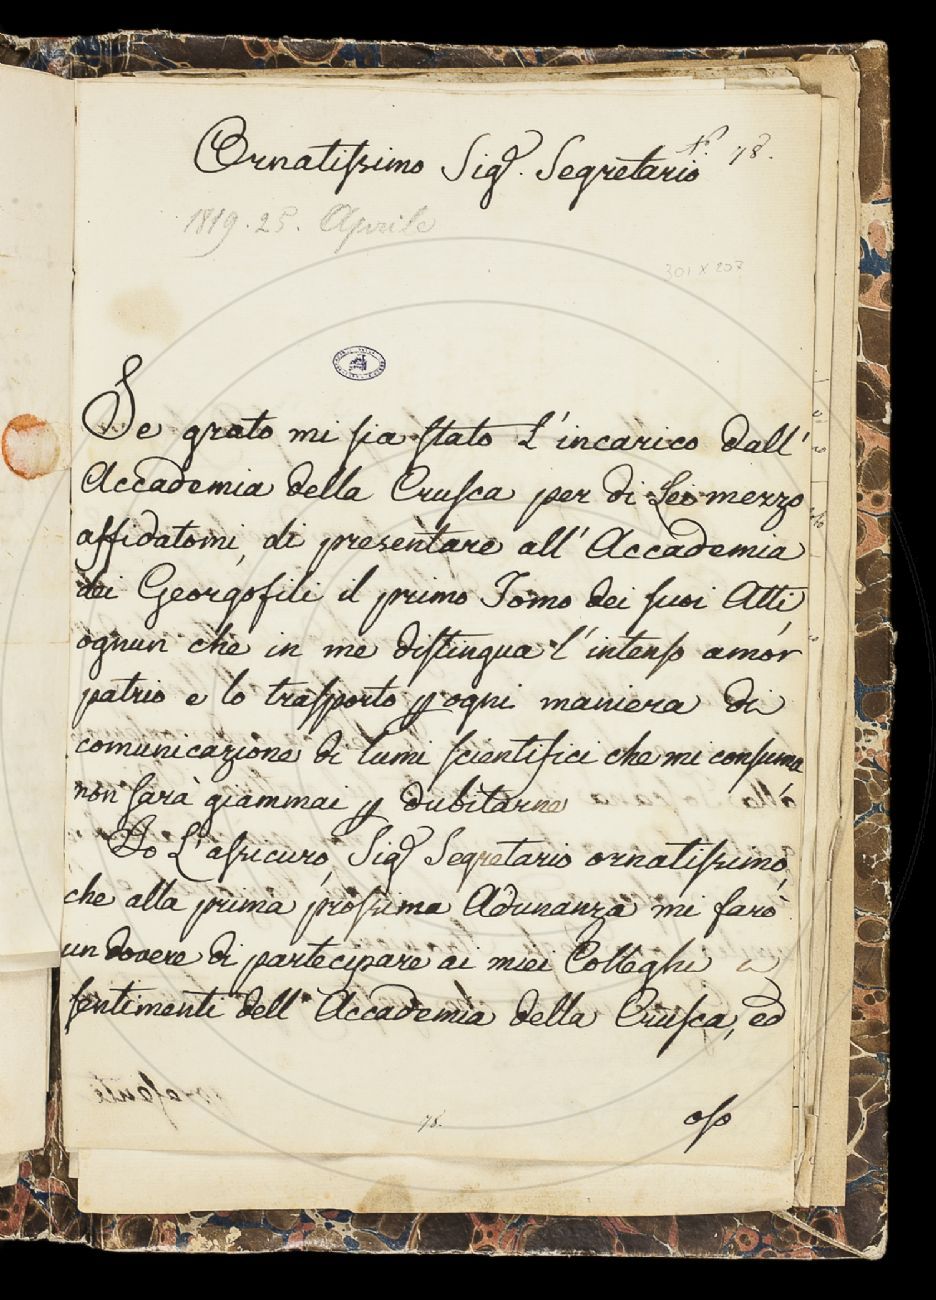 N.° 78.
Ornatissimo Sig.r Segretario
1819. 25. Aprile
301 X 207
Se grato mi sia stato l'incarico dall'
Accademia della Crusca per di Lei mezzo
affidatomi, di presentare all'Accademia
dei Georgofili il primo Tomo dei suoi Atti,
ognun che in me distingua l'intenso amor
patrio e lo trasporto p ogni maniera di
comunicazione di lumi scientifici che mi consuma,
non sarà giammai p dubitarne
Io L'assicuro, Sig.r Segretario ornatissimo,
che alla prima prossima Adunanza mi farò
un dovere di partecipare ai miei Colleghi i
sentimenti dell'Accademia della Crusca, ed
78.